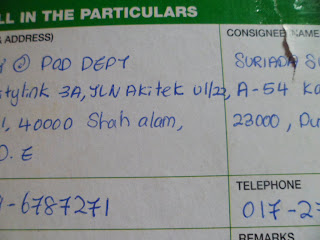 LL IN THE PARTICULARS
ADDRESS)
@ POD DEPT
itylink 3A, JLN Akitek U1/22,
1, 40000 Shah alam,
D. E
9-6787271
CONSIGNEE NAME
SURIADA
A-54
23000, Du
TELEPHONE
017-2
REMARKS